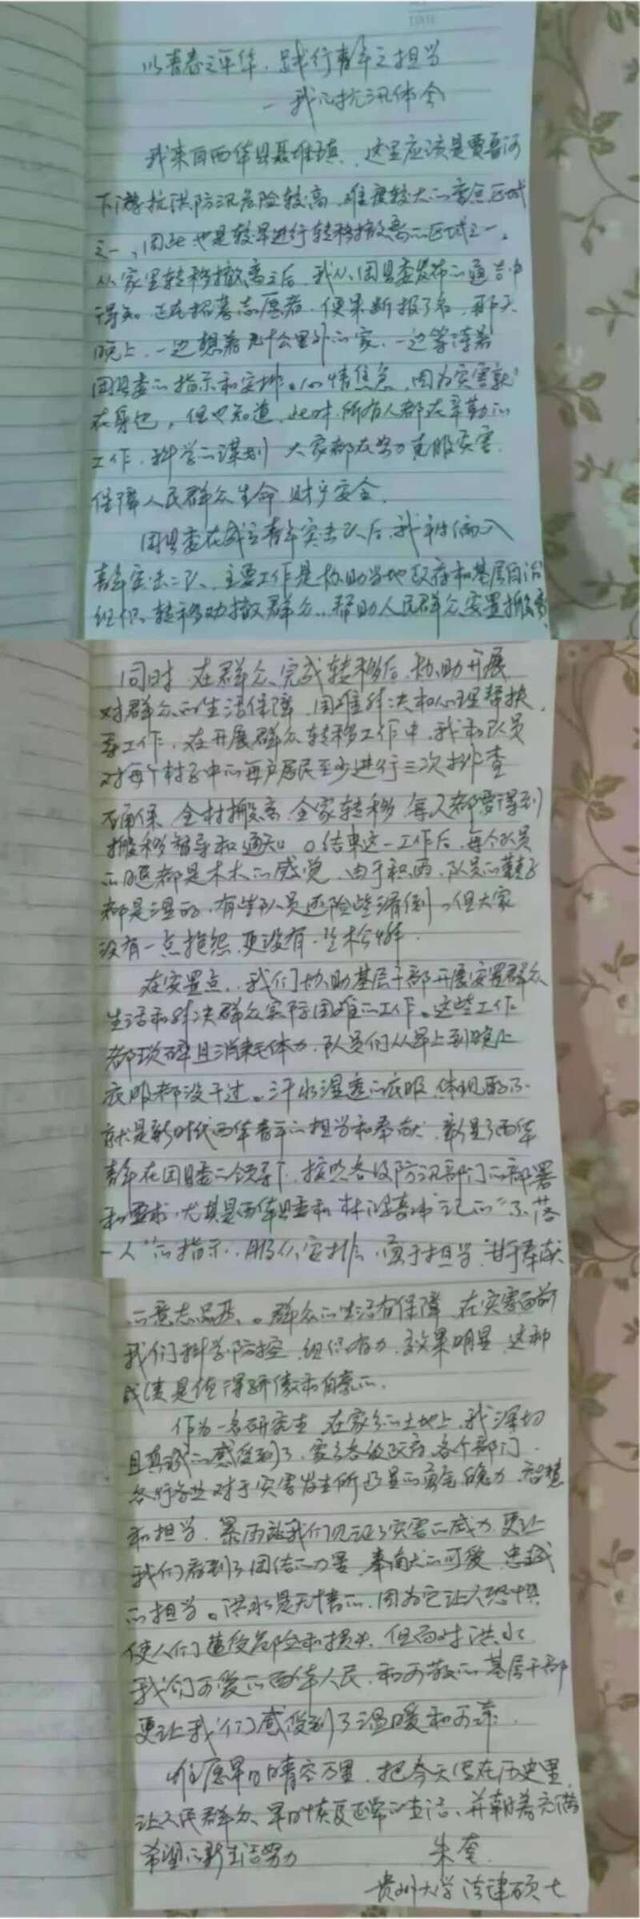 以青春之年华，践行青年之担当
—我的抗汛体会
我来自西华县聂堆镇，这里应该是贾鲁河
下游抗洪防汛危险较高、难度较大的重点区域
之一，因此也是较早进行转移撤离的区域之一。
从家里转移撤离之后，我从团县委发布的通告中
得知，正在招募志愿者，便果断报了名，那天
晚上，一边想着几十公里外的家，一边等待着
团县委的指示和安排。心情焦急，因为灾害就
在身边，但也知道，此时，所有人都在辛勤的
工作，科学的谋划，大家都在努力克服灾害，
保障人民群众生命、财产安全。
团县委在成立青年突击队后，我被编入
青年突击二队，主要工作是协助当地政府和基层自治
组织，转移劝撤群众，帮助人民群众安置搬离，
同时，在群众完成转移后，协助开展
对群众的生活保障，困难解决和心理帮扶
等工作，在开展群众转移工作中，我和队员
对每个村子中的每户居民至少进行三次排查
确保全村搬离，全家转移，每人都要得到
搬移督导和通知。结束这一工作后，每个队员
的腿都是木木的感觉，由于积雨，队员的鞋子
都是湿的，有些队员还险些滑倒，但大家
没有一点抱怨，更没有
在安置点，我们协助基层干部开展安置群众
生活和解决群众实际困难的工作。这些工作
都琐碎且消耗体力，队员们从早上到晚上
衣服都没干过。汗水湿透的衣服，体现的不
就是新时代西华青年的担当和奉献，彰显了西华
青年在团县委的领导下，按照各级防汛部门的部署
和要求，尤其是西华县委和林鸿嘉书记的“不落
一人”的指示，服从安排，勇于担当，甘于奉献
的意志品质。群众的生活有保障，在灾害面前
我们科学防控，组织有力，效果明显，这种
成绩是值得骄傲和自豪的。
作为一名研究生，在家乡的土地上，我深切
且真诚的感受到了，家乡各级政府，各个部门，
各行各业对于灾害发生所彰显的勇气、魄力、智慧
和担当，暴雨让我们见证了灾害的威力，更让
我们看到了团结的力量，奉献的可爱，忠诚
的担当。洪水是无情的，因为它让人恐惧
使人们遭受危险和损失，但面对洪水
我们可爱的西华人民，和可敬的基层干部
更让我们感受到了温暖和可靠。
唯愿早日晴空万里，把今天留在历史里，
让人民群众，早日恢复正常的生活，并朝着充满
希望的新生活努力
朱奎
贵州大学法律硕士